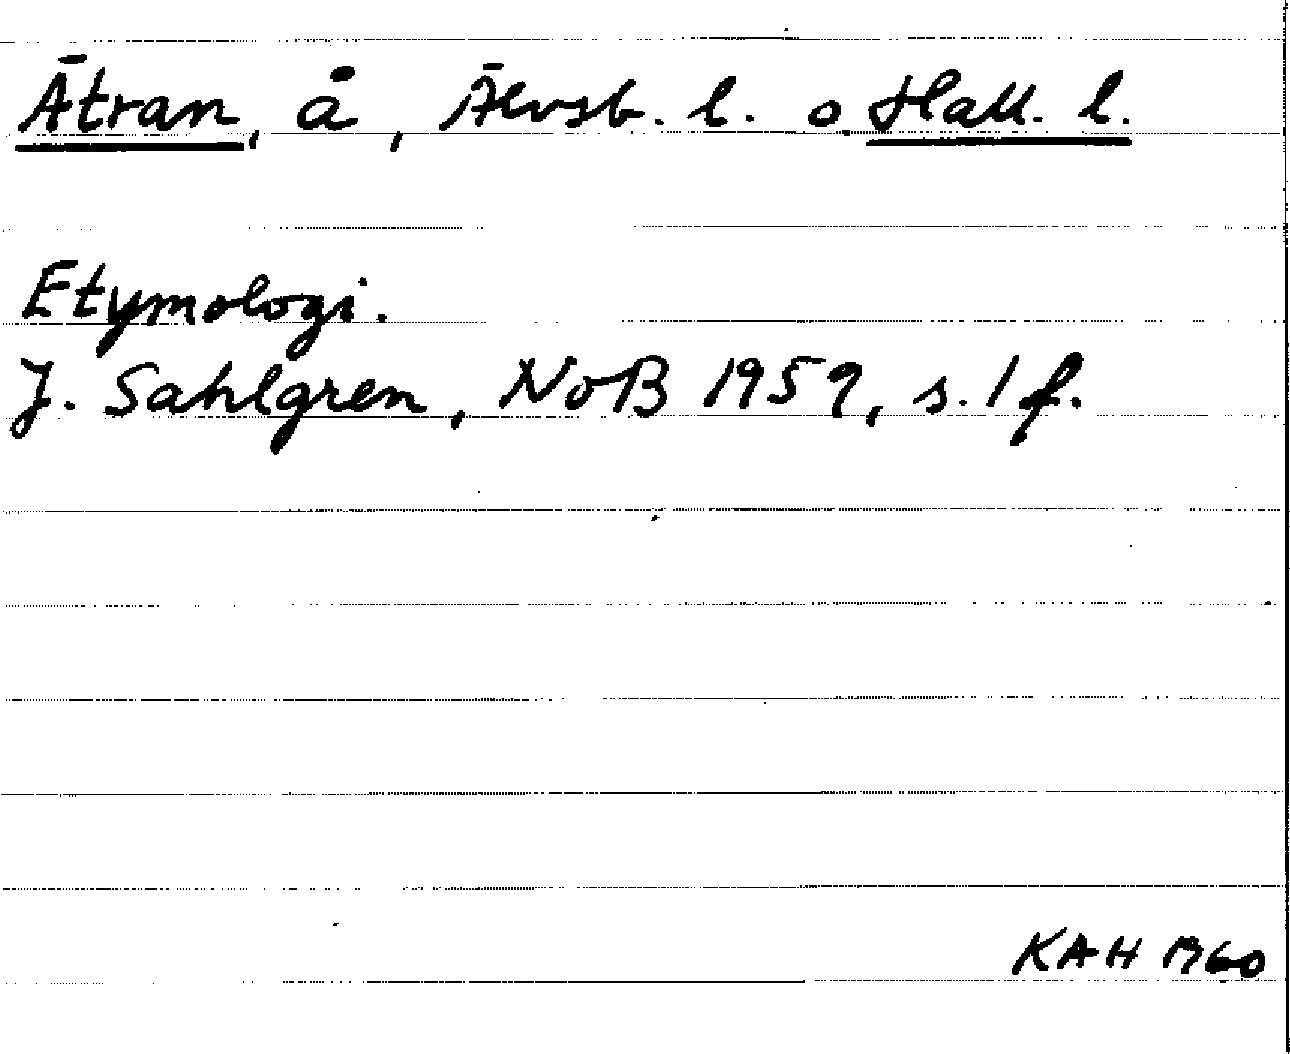 Ätran, å, Älvsb. l. o. Hall. l.
Etymologi.
J. Sahlgren, NoB 1959, s. 1 f.
KAH 1960